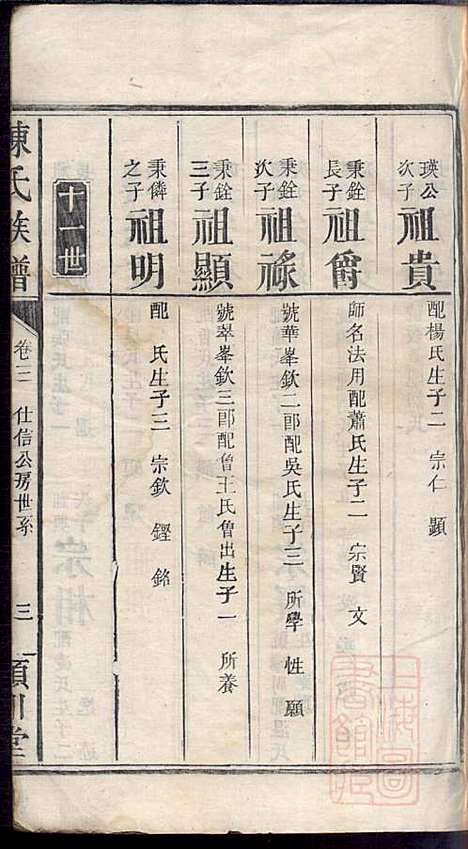 瑛公次子 祖貴 配楊氏生子二 宗仁 顯
秉銓長子 祖爵 師名法用配蕭氏生子二 宗賢 文
秉銓次子 祖祿 號華峯欽二郎配吳氏生子三 所學 性 願
秉銓三子 祖顯 號翠峯欽三郎配曾王氏曾出生子一 所養
秉儔之子 祖明 配 氏生子三 宗欽 鏗 銘
十一世
陳氏族譜 卷三 仕信公房世系 三 潁川堂
上海圖書館藏